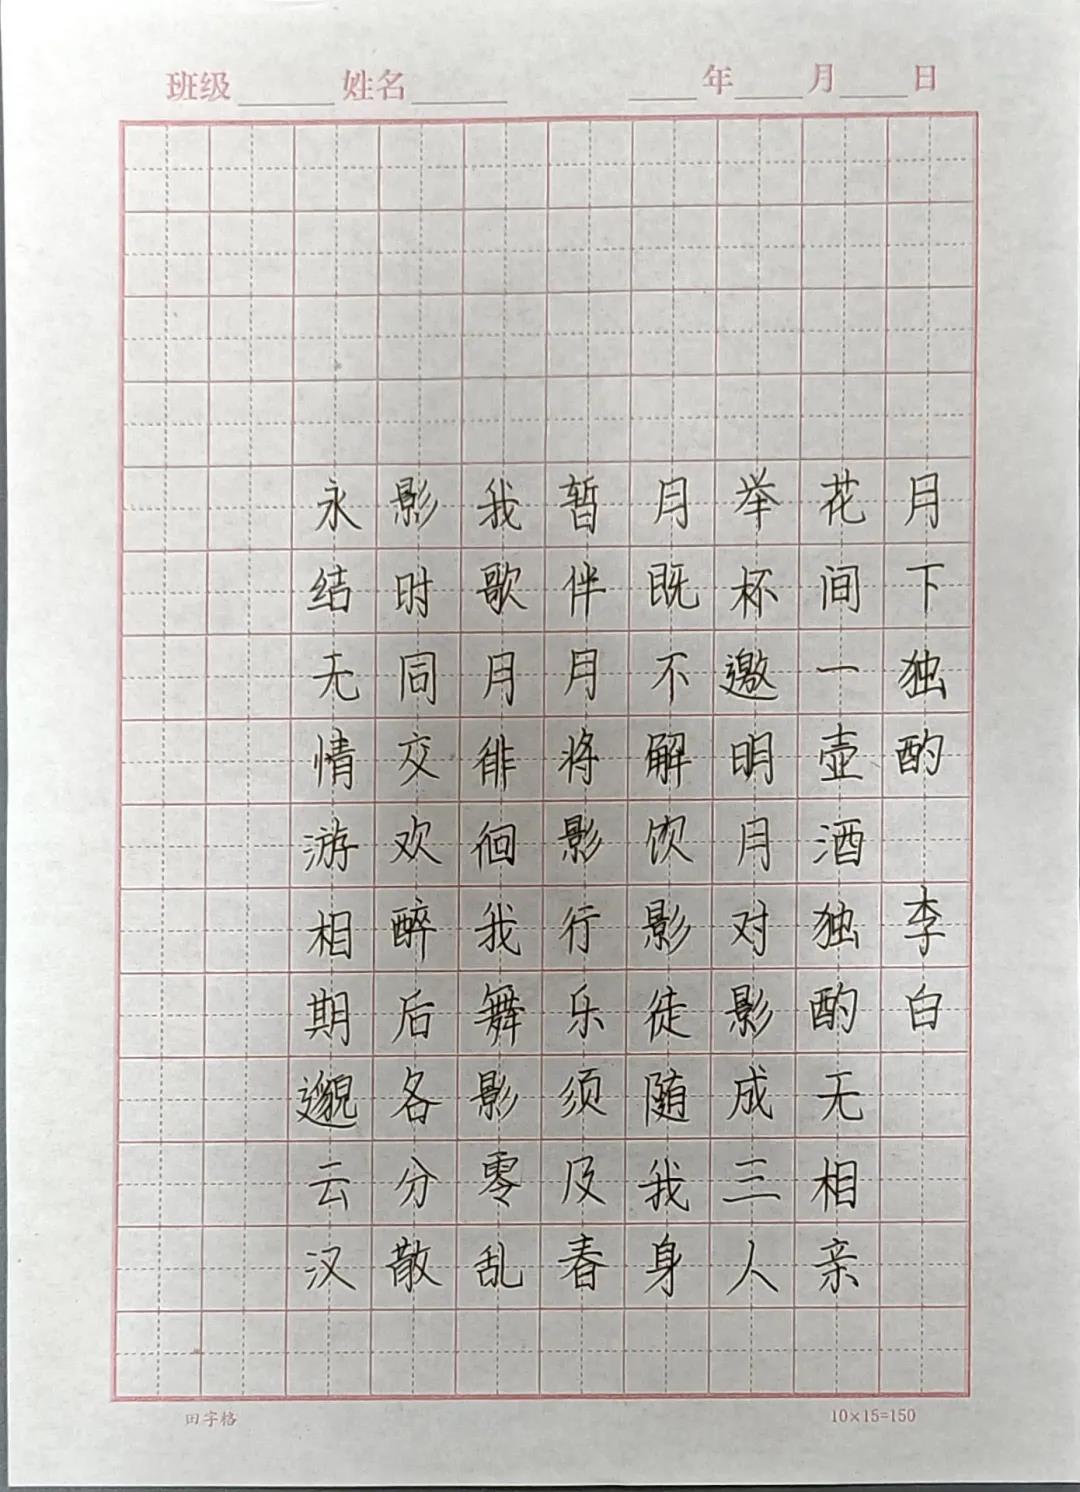 班级 姓名 年 月 日
月下独酌 李白
花间一壶酒独酌无相亲
举杯邀明月对影成三人
月既不解饮影徒随我身
暂伴月将影行乐须及春
我歌月徘徊我舞影零乱
影时同交欢醉后各分散
永结无情游相期邈云汉
田字格
10×15=150